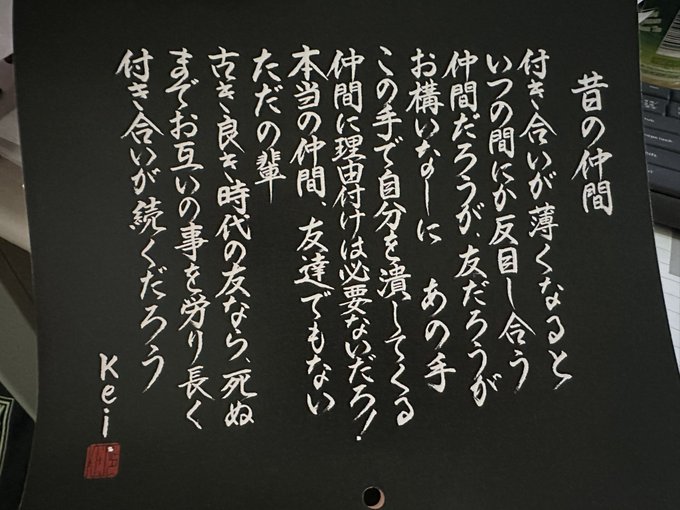 昔の仲間
付き合いが薄くなると
いつの間にか反目し合う
仲間だろうが、友だろうが
お構いなしに　あの手
この手で自分を潰してくる
仲間に理由付けは必要ないだろ！
本当の仲間、友達でもない
ただの輩
古き良き時代の友なら、死ぬ
までお互いの事を労り長く
付き合いが続くだろう
Kei